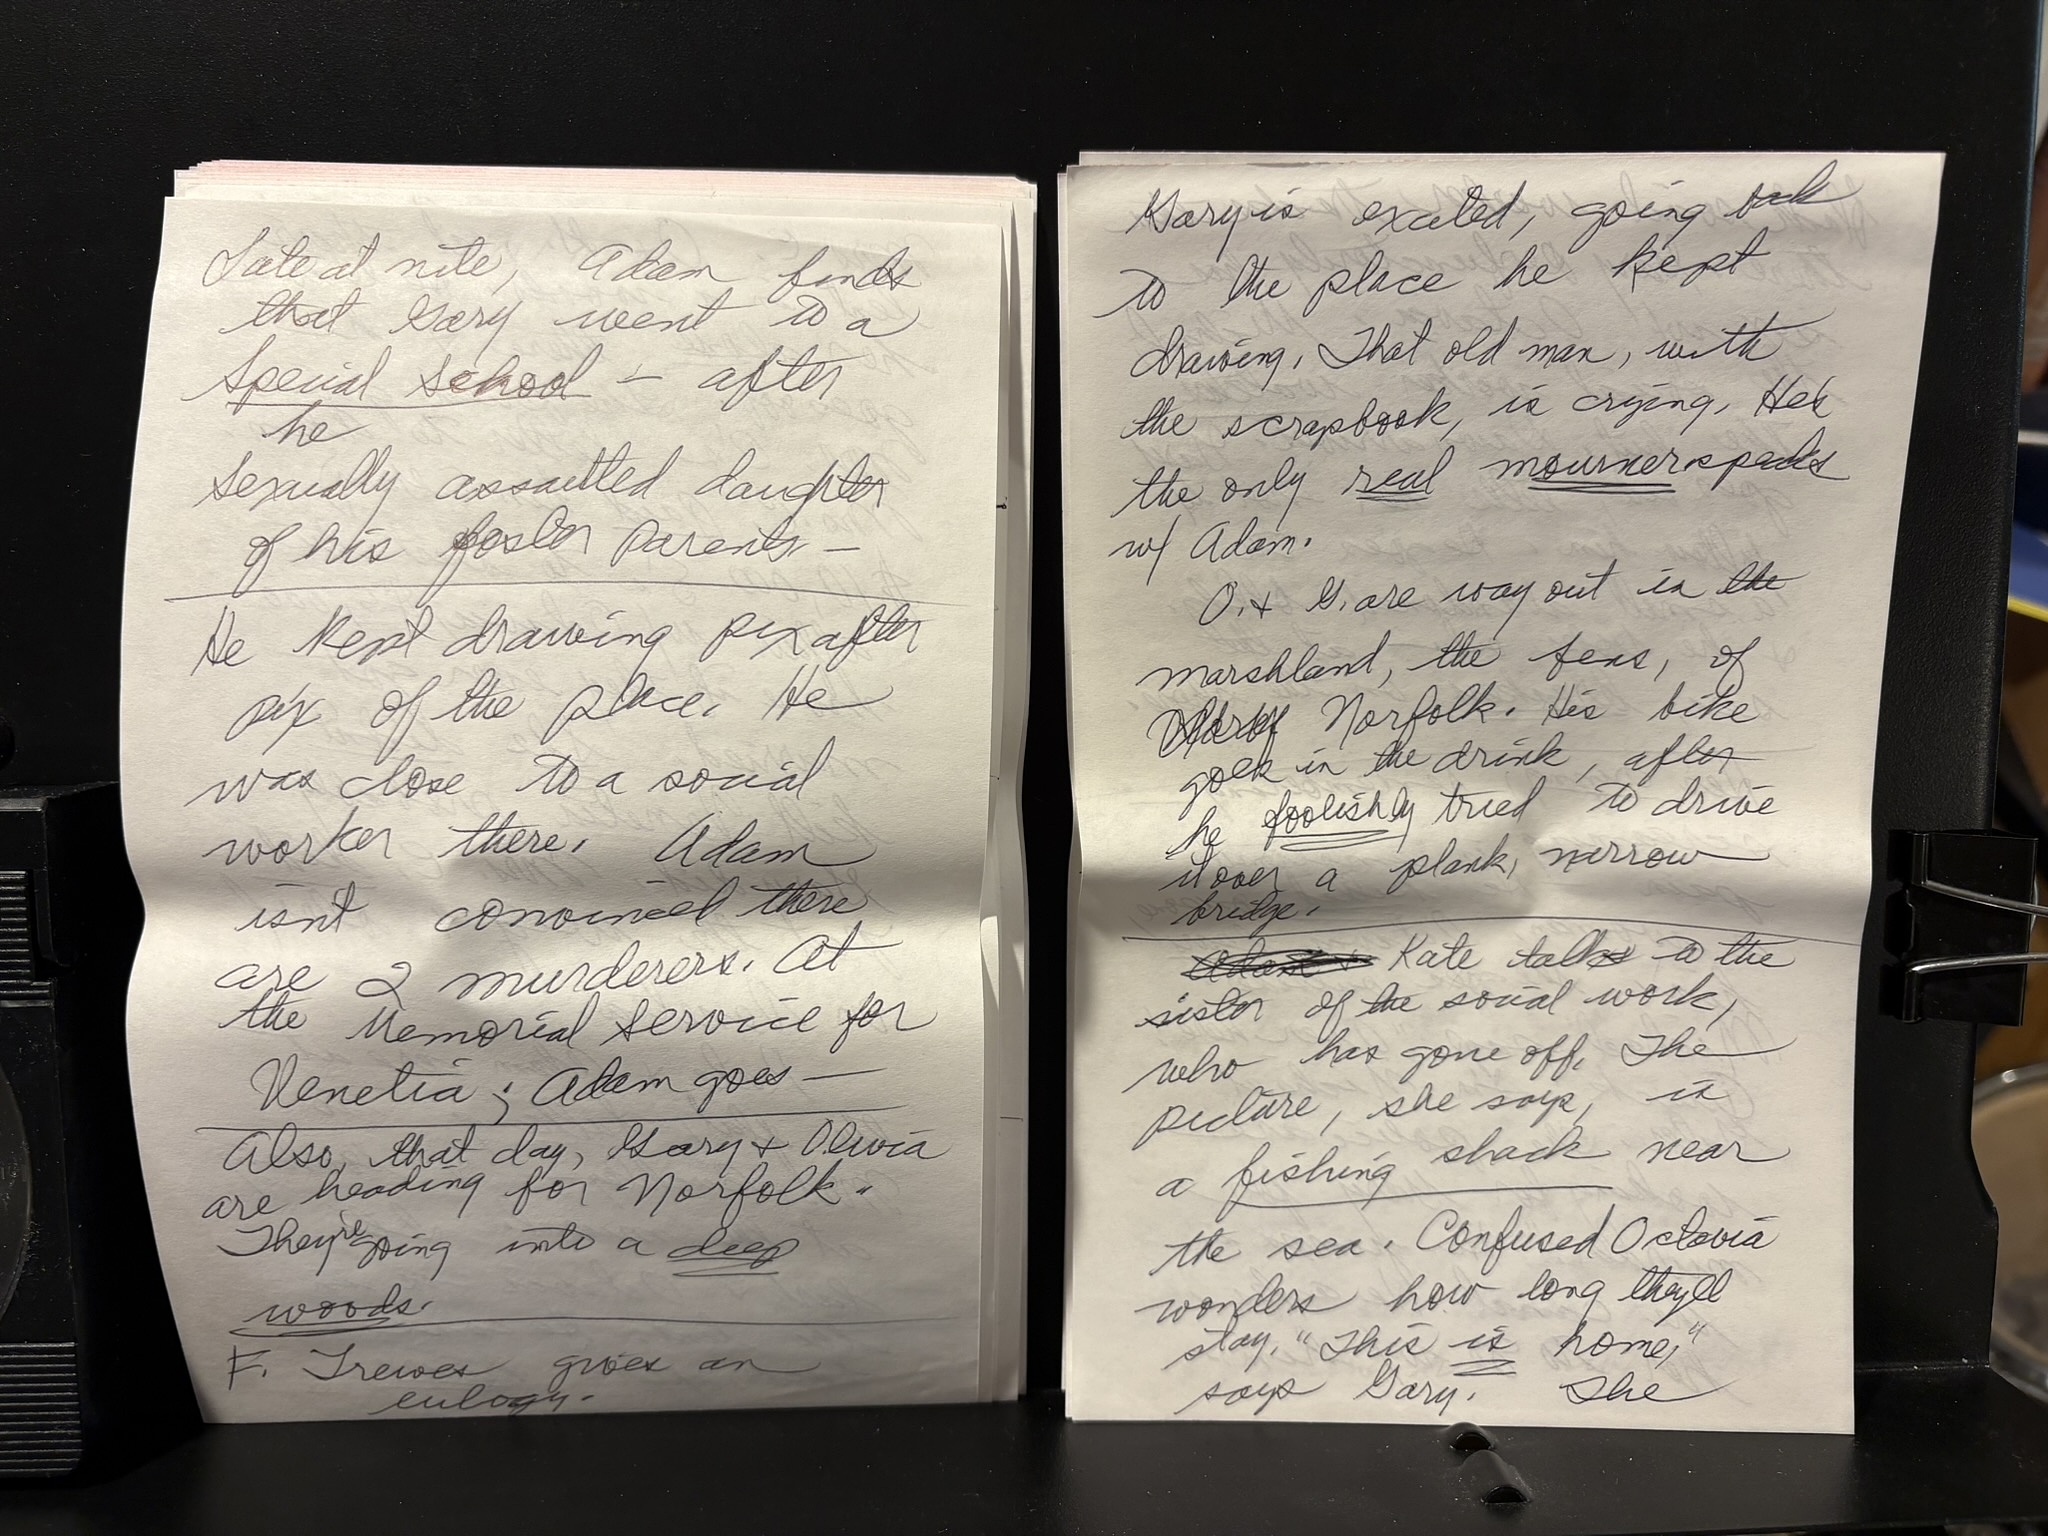 Late at nite, Adam finds
that Gary went to a
special school – after
he
sexually assaulted daughter
of his foster parents –
He kept drawing pix after
pix of the place. He
was close to a social
worker there. Adam
isnt convinced there
are 2 murderers. At
the Memorial Service for
Venetia; Adam goes —
Also, that day, Gary + Olivia
are heading for Norfolk.
They're going into a deep
woods.
F. Treves gives an
eulogy.
Gary is excited, going back
to the place he kept
drawing. That old man, with
the scrapbook, is crying. He's
the only real mourner. speaks
w/ Adam.
O. + G. are way out in the
marshland, the fens, of
Norfolk. His bike
goes in the drink, after
he foolishly tried to drive
it over a plank, narrow
bridge.
Kate talks to the
sister of the social work,
who has gone off. The
picture, she says, is
a fishing shack near
the sea. Confused Octavia
wonders how long they'll
stay. "This is home,"
says Gary. The